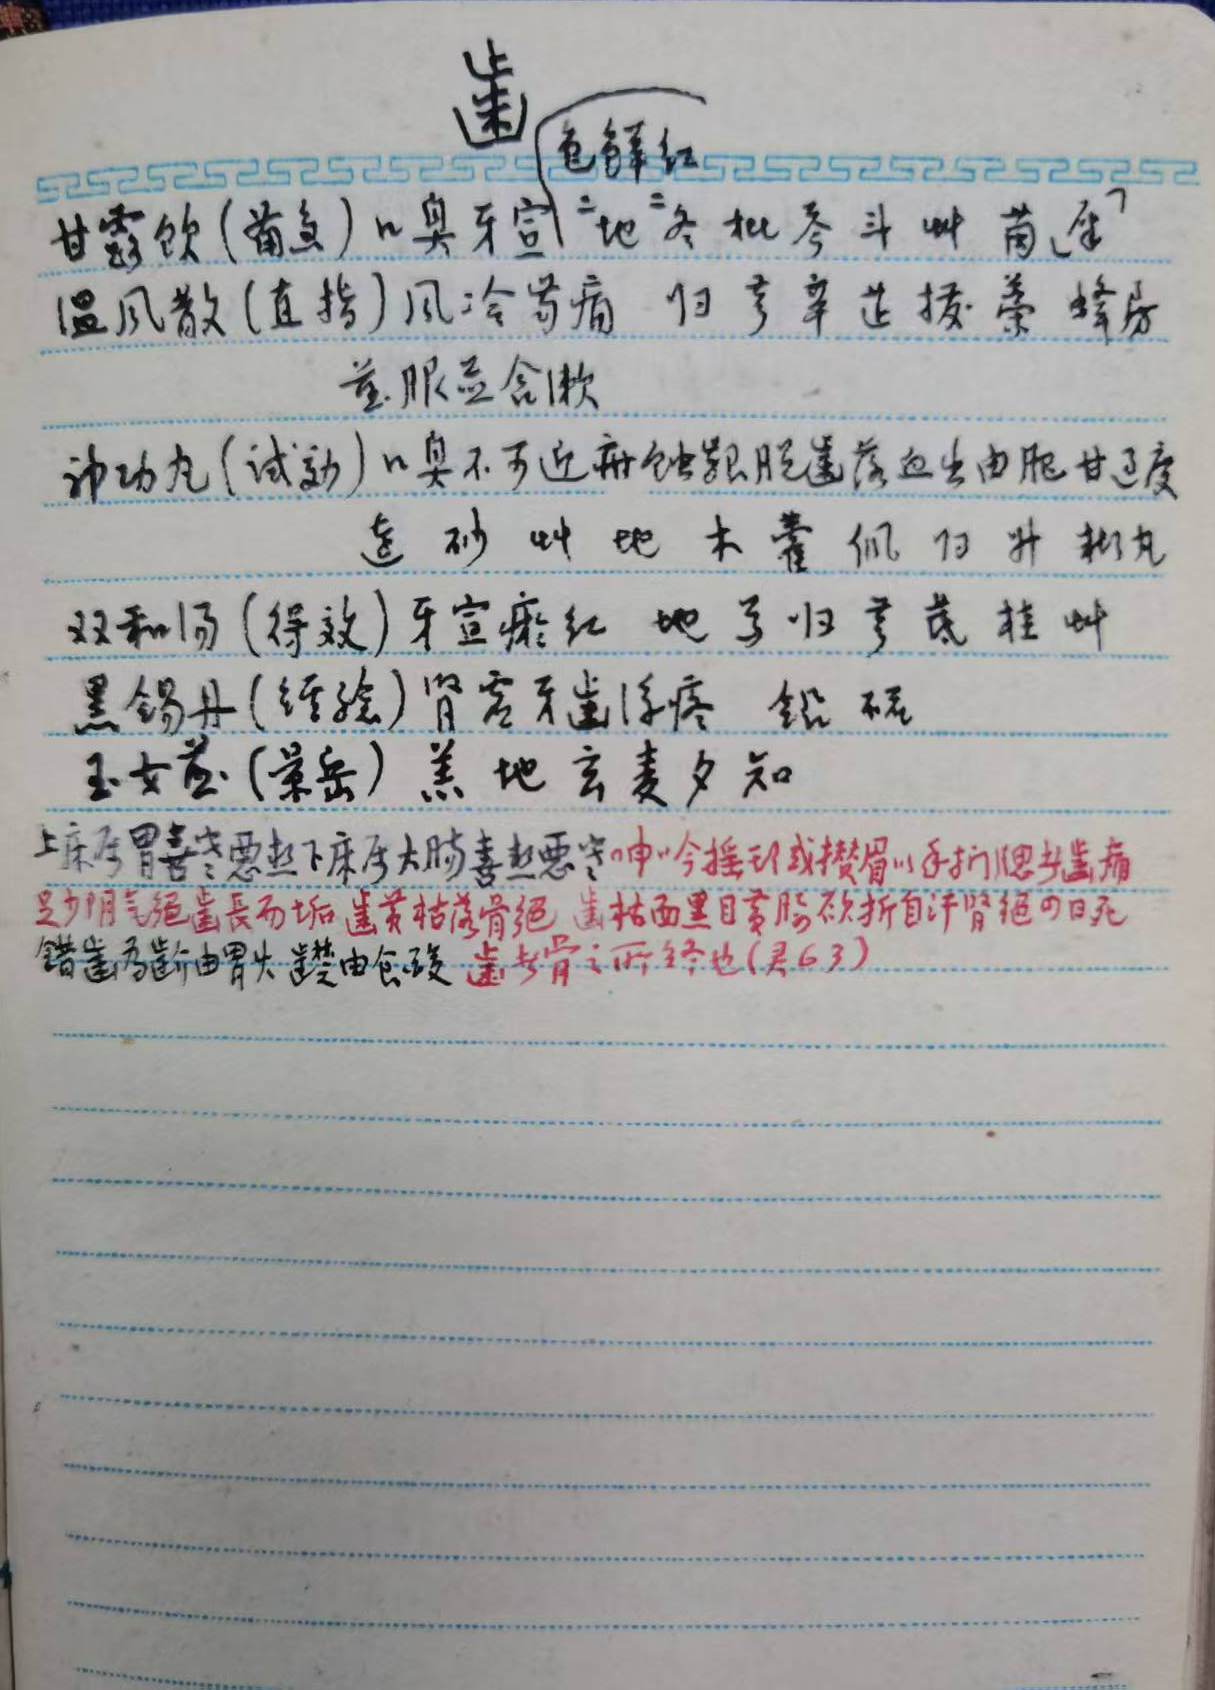 齿
色鲜红
甘露饮(菌多)口臭牙宣 二地二冬枇芩斗艸茵
温风散(直指)风冷齿痛 归芎辛荜拨藁蜂房
煎服并含漱
神功丸(试効)口臭不可近疳蚀龈脱齿落血出由肥甘过度
连砂艸地木藿 归升 丸
双和汤(得效)牙宣瘀红 地芍归芎芪桂艸
黑锡丹(经验)肾虚牙齿浮疼 铅硫
玉女煎(景岳)羔地玄麦夕知
上床属胃喜寒恶热下床属大肠喜热恶寒呻吟摇头或攒眉以手扪腮者齿痛
足少阴气绝齿長而垢 齿黄枯落骨绝 齿枯面黑目黄腰欲折自汗肾绝四日死
錯齿为齘由胃火 齼由食酸 齿者骨之所终也(君63)